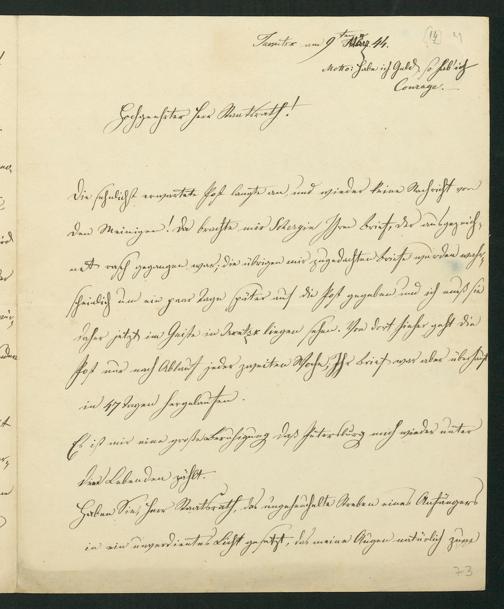 14
am 9ten März 44.
Motto: Habe ich Geld, so hab' ich
Courage.
Hochgeehrter Herr Staatsrath!
Die sehnlichst erwartete Post langte an, und wieder keine Nachricht von
den Meinigen! Da brachte mir Ihren Brief, der ausgezeich-
net rasch gegangen war; die übrigen mir zugedachten Briefe wurden wahr-
scheinlich um ein paar Tage später auf die Post gegeben und ich muß sie
daher jetzt im Geiste in liegen sehen. Von dort hieher geht die
Post nur nach Ablauf jeder zweiten Woche, Ihr Brief war aber überhaupt
in 47 Tagen hergelaufen.
Es ist mir eine große Beruhigung daß Petersburg mich wieder unter
den Lebenden zählt.
Haben Sie, Herr Staatsrath, das ungeheuchelte Streben eines Anfängers
in ein unverdientes Licht gesetzt, das meine Augen natürlich zum
73